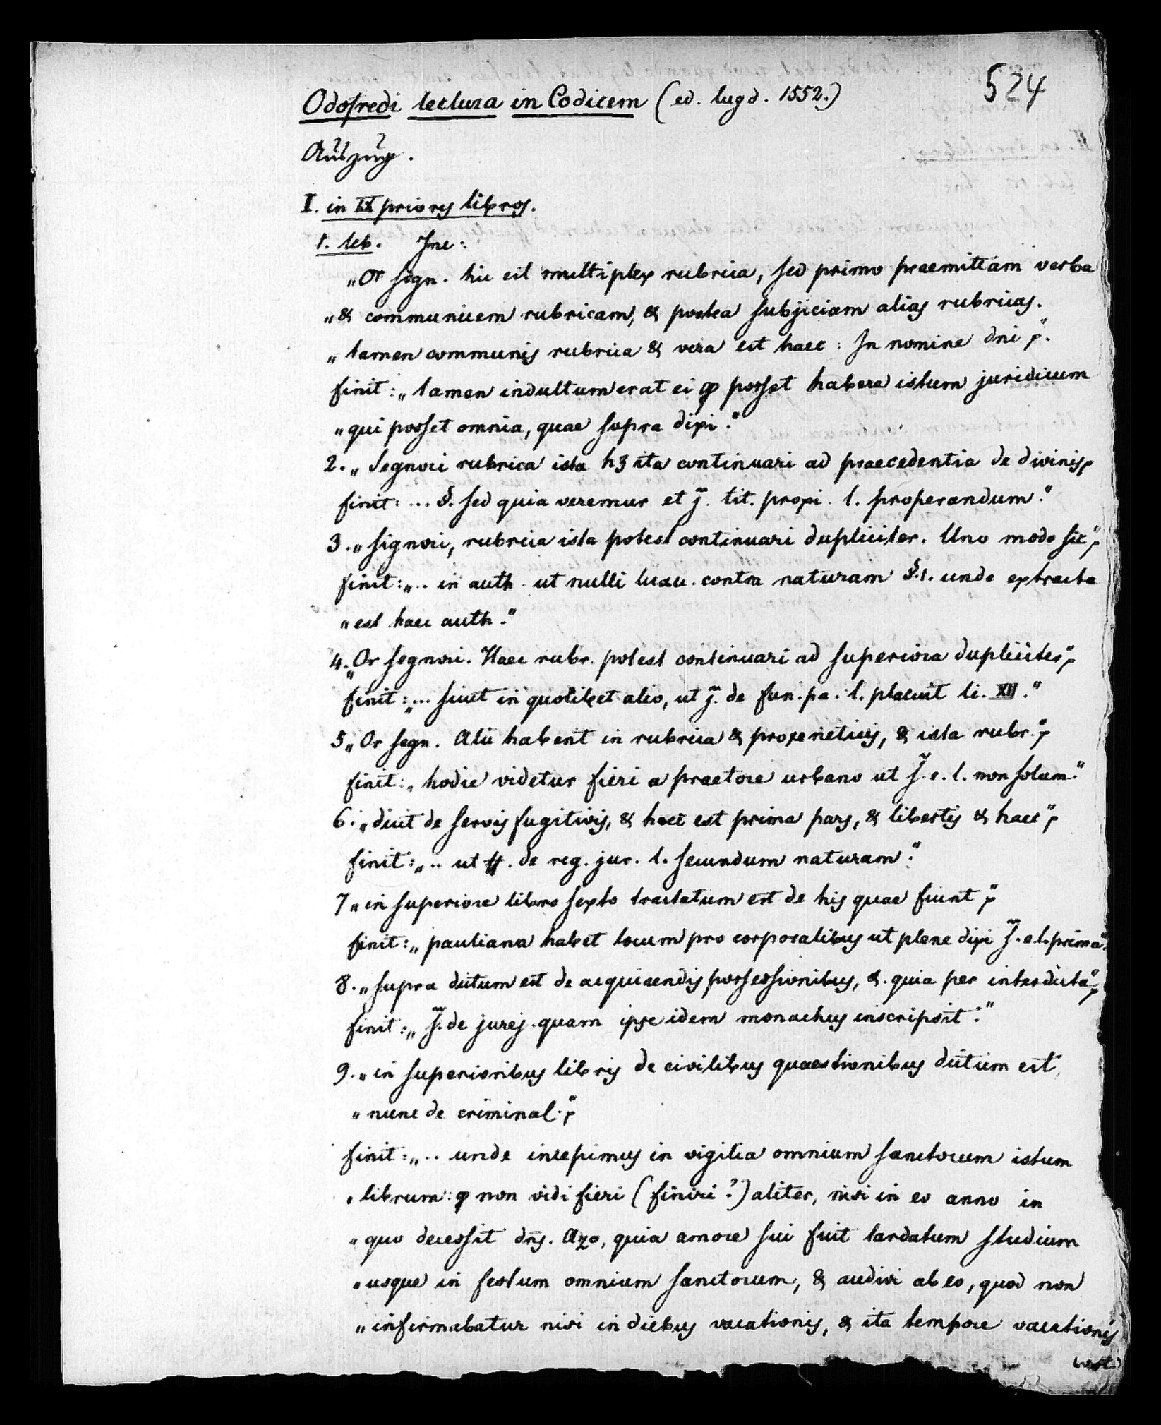 524
Odofredi lectura in Codicem (ed. lugd. 1552.)
Auszug.
I. in IX priores libros.
1. leb. Inc:
„Or segn. hic est multiplex rubrica, sed primo praemittam verba
„& communicem rubricam, & postea subjiciam alias rubricas.
„tamen communis rubrica & vera est haec: In nomine dni;".
finit: „tamen indultum erat ei qp posset habere istum juridicum
„qui posset omnia, quae supra dixi."
2. „Segnori rubrica ista hʒ ita continuari ad praecedentia de divinis;
finit: ... §. sed quia veremur et j. tit. proxi. l. properandum."
3. „signori, rubrica ista potest continuari dupliciter. Uno modo sic";
finit: „.. in auth. ut nulli iudi. contra naturam §.1. unde extracta
„est haec auth."
4. „Or segnori. Haec rubr. potest continuari ad superiora dupliciter";
finit: „... sicut in quolibet alio, ut j. de fun. pa. l. placuit li. XII."
5 „Or segn. Alii habent in rubrica & proxeneticis, & ista rubr.";
finit: „hodie videtur fieri a praetore urbano ut j. e. l. non solum."
6. „dicit de servis fugitivis, & haec est prima pars, & libertis & haec";
finit: „.. ut ff. de reg. jur. l. secundum naturam."
7 „in superiore libro sexto tractatum est de his quae fiunt";
finit: „pauliana habet locum pro corporalibus ut plene dixi j. e. l. prima".
8. „supra dictum est de acquirendis possessionibus, &. quia per interdicta";
finit: „j. de jurej. quam ipse idem monachus inscripsit."
9. „in superioribus libris de civilibus quaestionibus dictum est,
„nunc de criminal.";
finit: „.. unde incepimus in vigilia omnium sanctorum istum
„librum: qp non vidi fieri (finiri?) aliter, nisi in eo anno in
„quo decessit dns. Azo, quia amore sui fuit tardatum studium
„usque in festum omnium sanctorum, & audivi ab eo, quod non
„infirmabatur nisi in diebus vacationis, & ita tempore vacationis